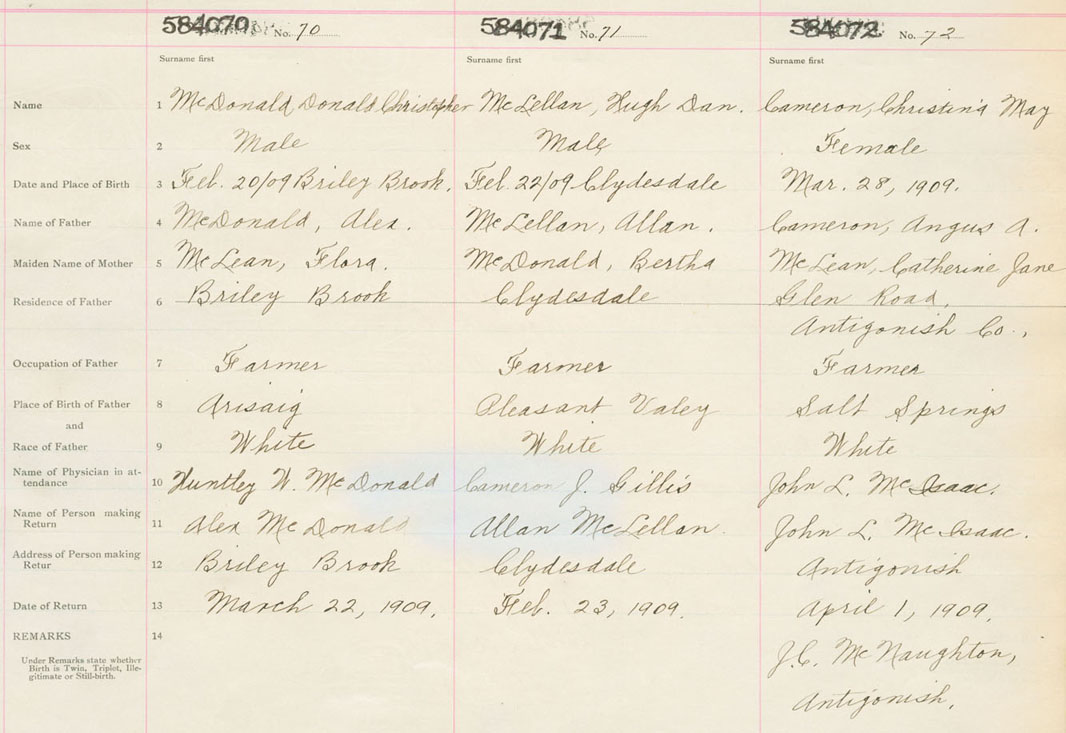 584070 No. 70 584071 No. 71 584072 No. 72
Surname first Surname first Surname first
Name 1 McDonald Donald Christopher McLellan, Hugh Dan. Cameron, Christina May
Sex 2 Male Male Female
Date and Place of Birth 3 Feb. 20/09 Briley Brook. Feb. 22/09 Clydesdale Mar. 28, 1909.
Name of Father 4 McDonald, Alex. McLellan, Allan. Cameron, Angus A.
Maiden Name of Mother 5 McLean, Flora. McDonald, Bertha McLean, Catherine Jane
Residence of Father 6 Briley Brook Clydesdale Glen Road,
Antigonish Co.,
Occupation of Father 7 Farmer Farmer Farmer
Place of Birth of Father 8 Arisaig Pleasant Valey Salt Springs
and
Race of Father 9 White White White
Name of Physician in at-
tendance 10 Huntley W. McDonald Cameron J. Gillis John L. McIsaac.
Name of Person making
Return 11 Alex McDonald Allan McLellan. John L. McIsaac.
Address of Person making
Retur 12 Briley Brook Clydesdale Antigonish
Date of Return 13 March 22, 1909. Feb. 23, 1909. April 1, 1909.
REMARKS 14
J.C. McNaughton,
Under Remarks state whether
Birth is Twin, Triplet, Ille-
gitimate or Still-birth.
Antigonish.